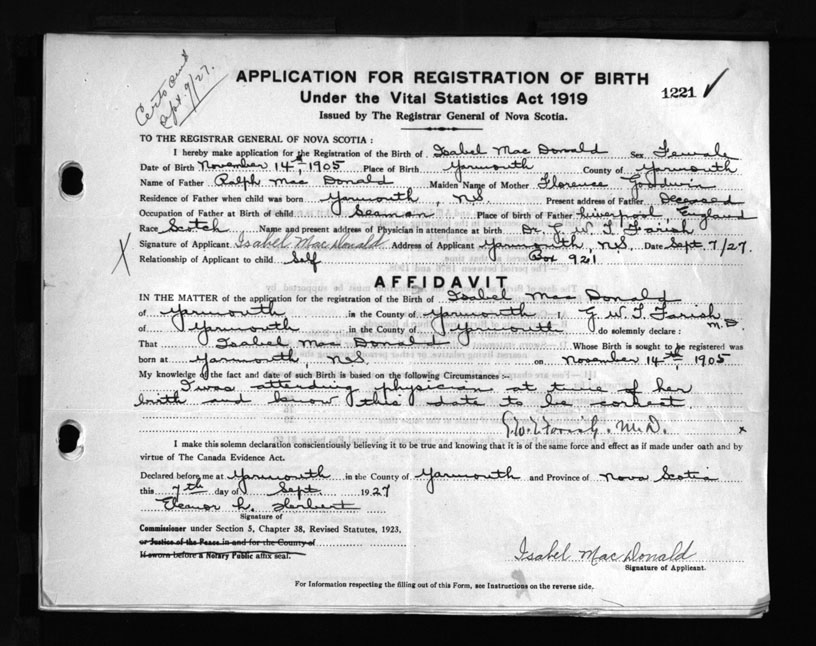 Certs out
Sept. 9/27.
APPLICATION FOR REGISTRATION OF BIRTH
1221 ✓
Under the Vital Statistics Act 1919
Issued by The Registrar General of Nova Scotia.
TO THE REGISTRAR GENERAL OF NOVA SCOTIA :
I hereby make application for the Registration of the Birth of Isabel Mac Donald Sex Female
Date of Birth November 14th, 1905 Place of Birth Yarmouth County of Yarmouth
Name of Father Ralph Mac Donald Maiden Name of Mother Florence Goodwin
Residence of Father when child was born Yarmouth, N.S. Present address of Father Deceased
Occupation of Father at Birth of child Seaman Place of birth of Father Liverpool, England
Race Scotch Name and present address of Physician in attendance at birth Dr. G. W. T. Farish
X Signature of Applicant Isabel MacDonald Address of Applicant Yarmouth, N.S. Date Sept. 7/27.
Relationship of Applicant to child Self Box 921
AFFIDAVIT
IN THE MATTER of the application for the registration of the Birth of Isabel Mac Donald
of Yarmouth in the County of Yarmouth, I, G. W. T. Farish M.D.
of Yarmouth in the County of Yarmouth do solemnly declare :
That Isabel Mac Donald Whose Birth is sought to be registered was
born at Yarmouth, N.S. on November 14th, 1905
My knowledge of the fact and date of such Birth is based on the following Circumstances :-
I was attending physician at time of her
birth and know this date to be correct.
G.W.T. Farish. M.D. x
I make this solemn declaration conscientiously believing it to be true and knowing that it is of the same force and effect as if made under oath and by
virtue of The Canada Evidence Act.
Declared before me at Yarmouth in the County of Yarmouth and Province of Nova Scotia
this 7th day of Sept. 1927
Eleanor L. Herbert
Signature of
Commissioner under Section 5, Chapter 38, Revised Statutes, 1923,
or Justice of the Peace in and for the County of
If sworn before a Notary Public affix seal.
Isabel MacDonald
Signature of Applicant.
For Information respecting the filling out of this Form, see Instructions on the reverse side.